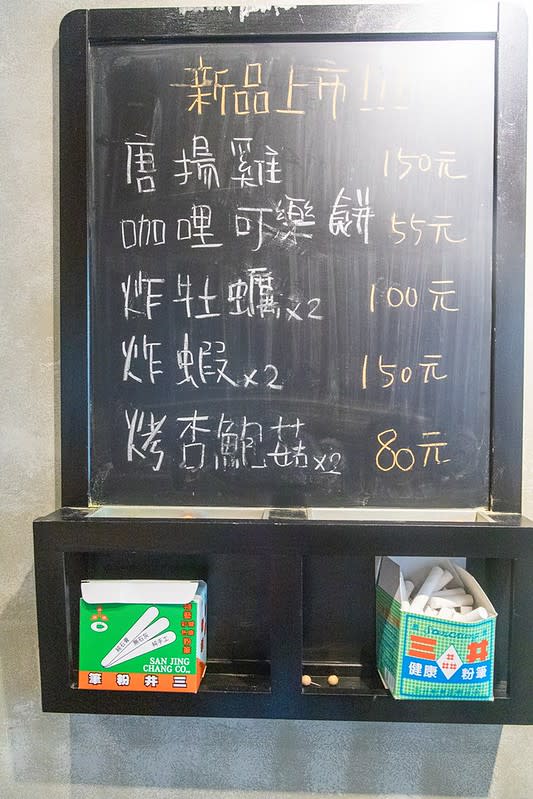 新品上市!!!
唐揚雞 150元
咖哩可樂餅 55元
炸牡蠣x2 100元
炸蝦x2 150元
烤杏鮑菇x2 80元
SAN JING
CHANG CO.,
筆粉井三
三井
健康粉筆